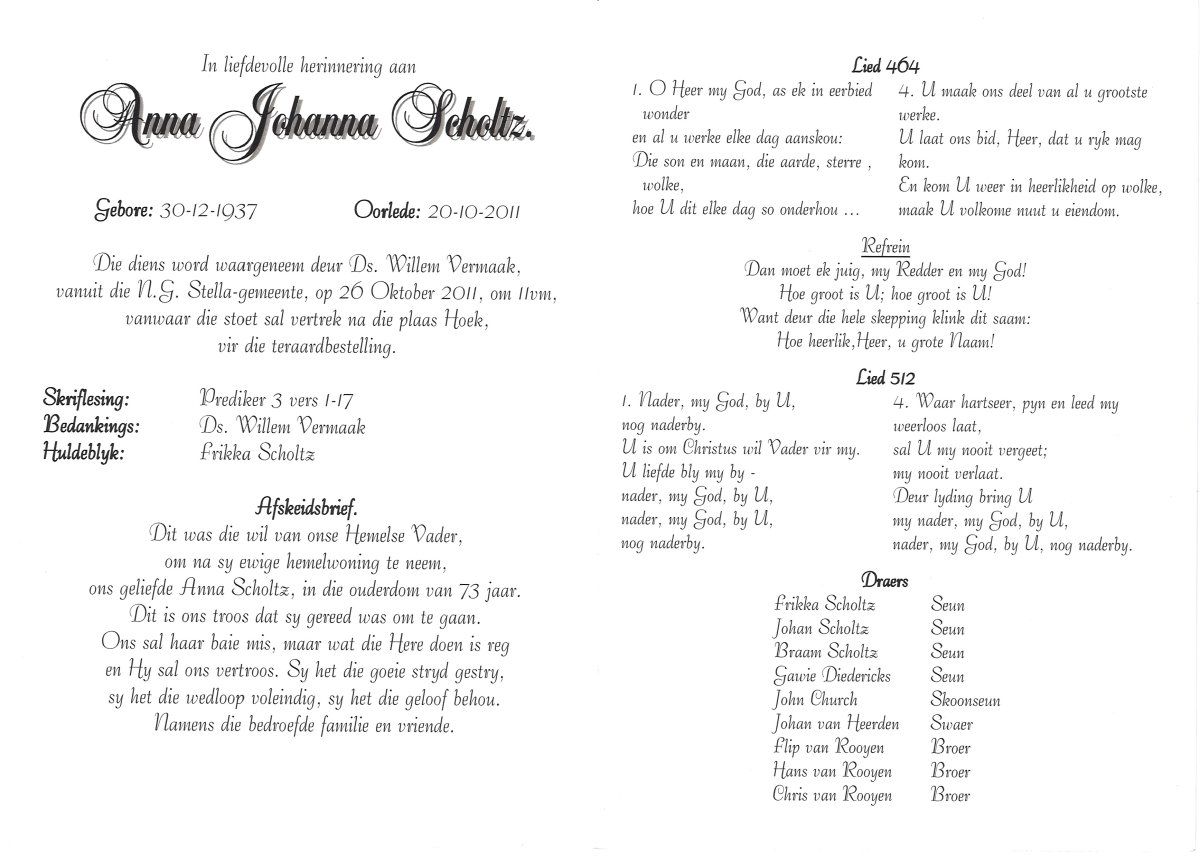 In liefdevolle herinnering aan
Anna Johanna Scholtz.
Gebore: 30-12-1937 Oorlede: 20-10-2011
Die diens word waargeneem deur Ds. Willem Vermaak,
vanuit die N.G. Stella-gemeente, op 26 Oktober 2011, om 11vm,
vanwaar die stoet sal vertrek na die plaas Hoek,
vir die teraardbestelling.
Skriflesing: Prediker 3 vers 1-17
Bedankings: Ds. Willem Vermaak
Huldeblyk: Frikka Scholtz
Afskeidsbrief.
Dit was die wil van onse Hemelse Vader,
om na sy ewige hemelwoning te neem,
ons geliefde Anna Scholtz, in die ouderdom van 73 jaar.
Dit is ons troos dat sy gereed was om te gaan.
Ons sal haar baie mis, maar wat die Here doen is reg
en Hy sal ons vertroos. Sy het die goeie stryd gestry,
sy het die wedloop voleindig, sy het die geloof behou.
Namens die bedroefde familie en vriende.
Lied 464
1. O Heer my God, as ek in eerbied
wonder
en al u werke elke dag aanskou:
Die son en maan, die aarde, sterre ,
wolke,
hoe U dit elke dag so onderhou ...
4. U maak ons deel van al u grootste
werke.
U laat ons bid, Heer, dat u ryk mag
kom.
En kom U weer in heerlikheid op wolke,
maak U volkome nuut u eiendom.
Refrein
Dan moet ek juig, my Redder en my God!
Hoe groot is U; hoe groot is U!
Want deur die hele skepping klink dit saam:
Hoe heerlik,Heer, u grote Naam!
Lied 512
1. Nader, my God, by U,
nog naderby.
U is om Christus wil Vader vir my.
U liefde bly my by -
nader, my God, by U,
nader, my God, by U,
nog naderby.
4. Waar hartseer, pyn en leed my
weerloos laat,
sal U my nooit vergeet;
my nooit verlaat.
Deur lyding bring U
my nader, my God, by U,
nader, my God, by U, nog naderby.
Draers
Frikka Scholtz Seun
Johan Scholtz Seun
Braam Scholtz Seun
Gawie Diedericks Seun
John Church Skoonseun
Johan van Heerden Swaer
Flip van Rooyen Broer
Hans van Rooyen Broer
Chris van Rooyen Broer